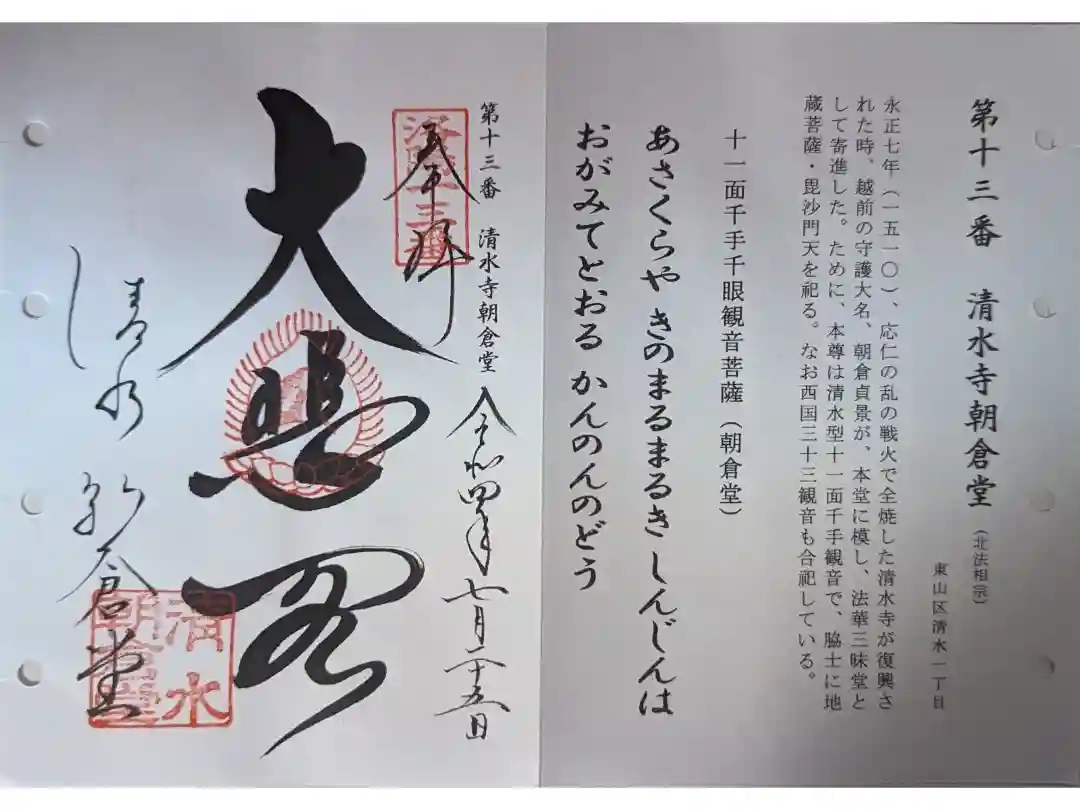 第十三番 清水寺朝倉堂（北法相宗）
東山区清水一丁目
永正七年（一五一〇）、応仁の乱の戦火で全焼した清水寺が復興さ
れた時、越前の守護大名、朝倉貞景が、本堂に模し、法華三昧堂と
して寄進した。ために、本尊は清水型十一面千手観音で、脇士に地
蔵菩薩・毘沙門天を祀る。なお西国三十三観音も合祀している。
十一面千手千眼観音菩薩（朝倉堂）
あさくらや きのまるまるき しんじんは
おがみてとおる かんのんのどう
第十三番 清水寺朝倉堂
奉拝
洛陽十三番
令和四年七月二十五日
大悲閣
清水朝倉堂
清水朝倉堂